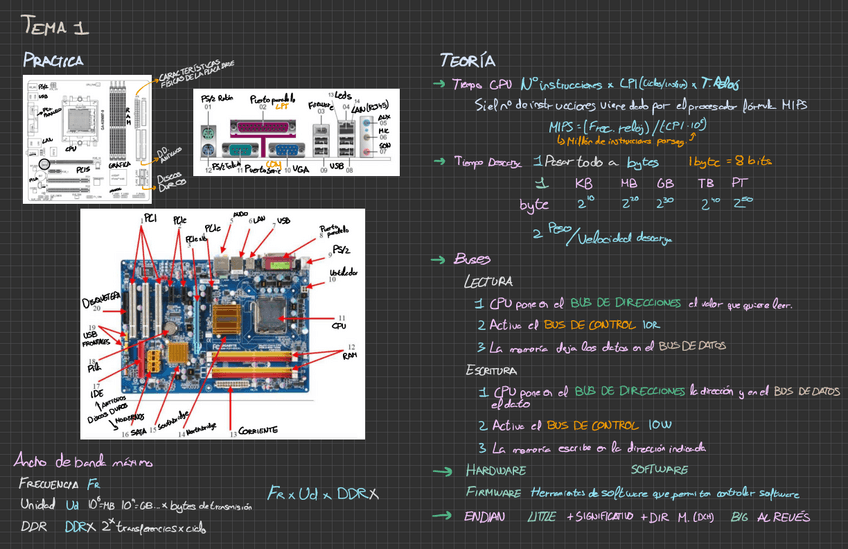 TEMA 1
PRACTICA
CARACTERÍSTICAS
FÍSICAS DE LA PLACA BASE
RAM
CPU
LAN
PCIS
GRÁFICA
DD
ANTIGUOS
DISCOS
DUROS
PS/2 Ratón
01
Puerto paralelo
02 LPT
Firewire
03
13 Leds
04
14
LAN (RJ45)
AUX
05
MIC
06
SON
07
12 PS/2 Teclado
11 Puerto Serie COM
10 VGA
09 USB
08
PCI
PCIe
PCIex16
PCIe
5 AUDIO
6 LAN
7 USB
Puerto
paralelo
8
PS/2
9
Ventilador
10
11
CPU
12
RAM
DISQUETERA
20
19
USB
FRONTALES
18
Pila
17
IDE
ANTIGUOS
DISCOS DUROS
MODERNOS
16 SATA
15 Southbridge
14 Northbridge
13 CORRIENTE
Ancho de banda máximo
FRECUENCIA FR
Unidad Ud 10⁶=MB 10⁹=GB... x bytes de transmisión
DDR DDRX 2ˣ transferencias x ciclo
FR x Ud x DDRX
TEORÍA
→ Tiempo CPU Nº instrucciones x CPI (Ciclos/instrucc) x T. Reloj
Si el nº de instrucciones viene dado por el procesador fórmula MIPS
MIPS = (Frec. reloj) / (CPI · 10⁶)
↳ Millón de instrucciones por seg.
→ Tiempo Descarga 1 Pasar todo a bytes 1 byte = 8 bits
1 KB MB GB TB PT
byte 2¹⁰ 2²⁰ 2³⁰ 2⁴⁰ 2⁵⁰
2 Peso / Velocidad descarga
→ BUSES
LECTURA
1 CPU pone en el BUS DE DIRECCIONES el valor que quiere leer.
2 Activa el BUS DE CONTROL IOR
3 La memoria deja los datos en el BUS DE DATOS
ESCRITURA
1 CPU pone en el BUS DE DIRECCIONES la dirección y en el BUS DE DATOS
el dato
2 Activa el BUS DE CONTROL IOW
3 La memoria escribe en la dirección indicada
→ HARDWARE SOFTWARE
FIRMWARE Herramientas de software que permiten controlar software
→ ENDIAN LITTLE + SIGNIFICATIVO + DIR M. (DCH) BIG AL REVÉS